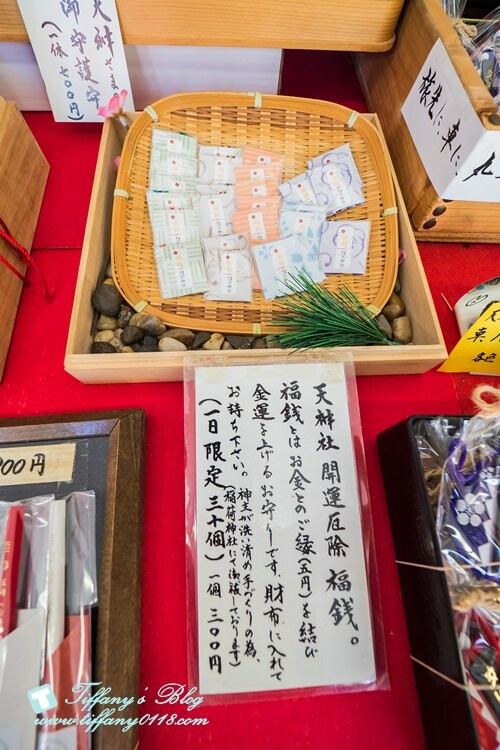 天神さま
御守護守
(一体 七〇〇円)
天神社 開運厄除 福銭。
福銭とはお金とのご縁(五円)を結び
金運を上げるお守りです。財布に入れて
お持ち下さい。
神主が洗い清め手づくりの為、
(稲荷神社にて御祓しております)
(一日限定 三十個) 一個 三〇〇円
00円
Tiffany's Blog
www.tiffany0118.com